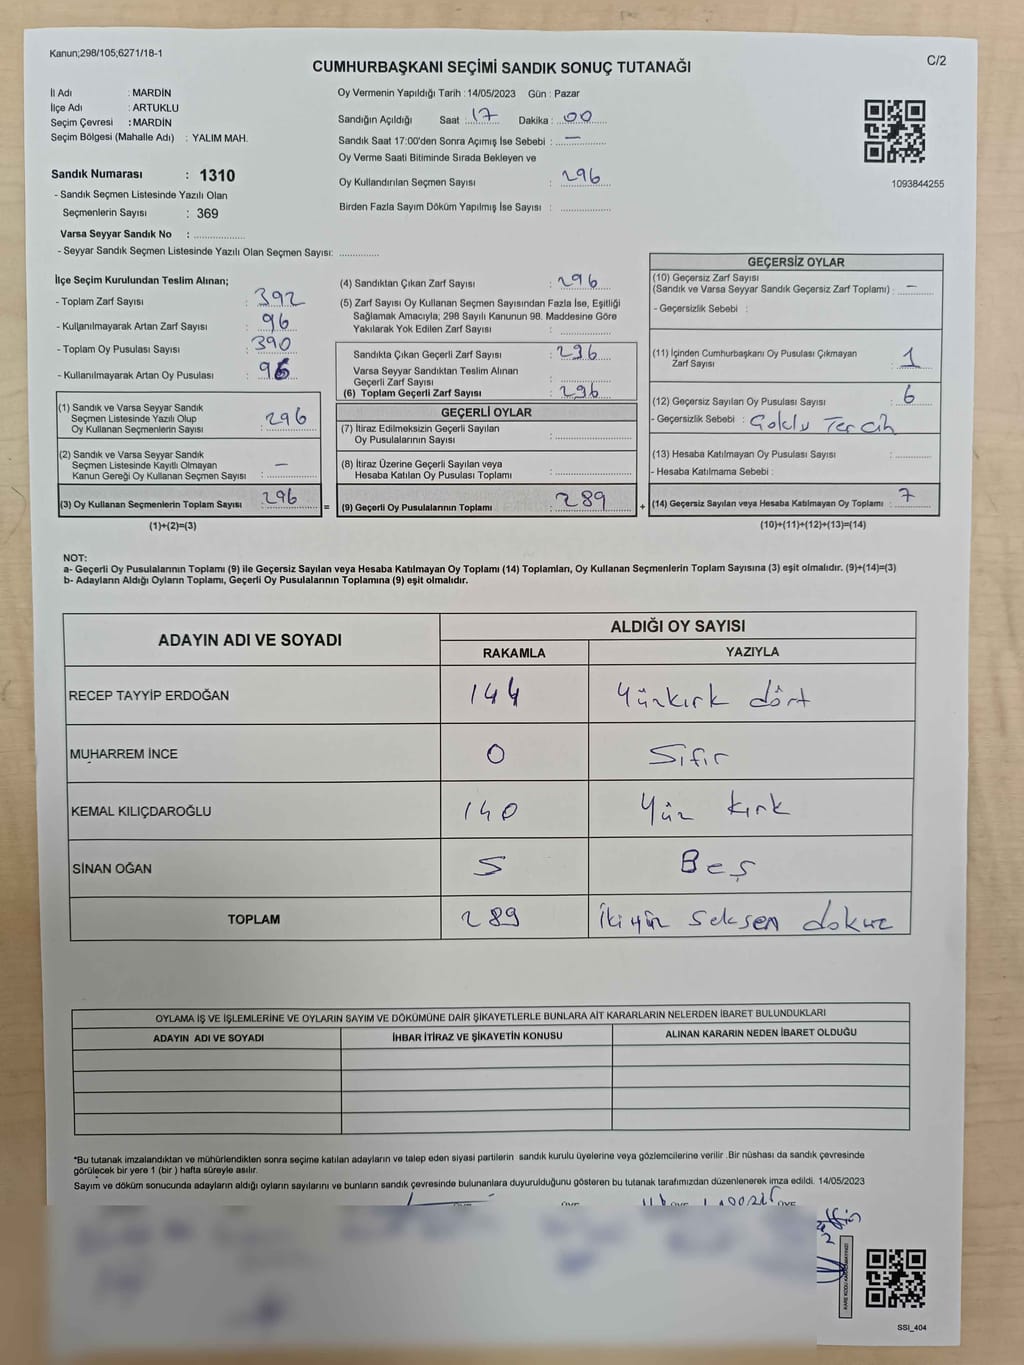 Kanun;298/105;6271/18-1
C/2
CUMHURBAŞKANI SEÇİMİ SANDIK SONUÇ TUTANAĞI
İl Adı : MARDİN
İlçe Adı : ARTUKLU
Seçim Çevresi : MARDİN
Seçim Bölgesi (Mahalle Adı) : YALIM MAH.
Sandık Numarası : 1310
- Sandık Seçmen Listesinde Yazılı Olan
Seçmenlerin Sayısı : 369
Varsa Seyyar Sandık No : ..................
- Seyyar Sandık Seçmen Listesinde Yazılı Olan Seçmen Sayısı: ..............
Oy Vermenin Yapıldığı Tarih :14/05/2023 Gün : Pazar
Sandığın Açıldığı Saat : 17 Dakika : 00
Sandık Saat 17:00'den Sonra Açımış İse Sebebi : —
Oy Verme Saati Bitiminde Sırada Bekleyen ve
Oy Kullandırılan Seçmen Sayısı : 296
Birden Fazla Sayım Döküm Yapılmış İse Sayısı : ..................
1093844255
İlçe Seçim Kurulundan Teslim Alınan;
- Toplam Zarf Sayısı : 392
- Kullanılmayarak Artan Zarf Sayısı : 96
- Toplam Oy Pusulası Sayısı : 390
- Kullanılmayarak Artan Oy Pusulası : 96
(1) Sandık ve Varsa Seyyar Sandık
Seçmen Listesinde Yazılı Olup
Oy Kullanan Seçmenlerin Sayısı : 296
(2) Sandık ve Varsa Seyyar Sandık
Seçmen Listesinde Kayıtlı Olmayan
Kanun Gereği Oy Kullanan Seçmen Sayısı : —
(3) Oy Kullanan Seçmenlerin Toplam Sayısı : 296 =
(1)+(2)=(3)
(4) Sandıktan Çıkan Zarf Sayısı : 296
(5) Zarf Sayısı Oy Kullanan Seçmen Sayısından Fazla İse, Eşitliği
Sağlamak Amacıyla; 298 Sayılı Kanunun 98. Maddesine Göre
Yakılarak Yok Edilen Zarf Sayısı : ..................
Sandıkta Çıkan Geçerli Zarf Sayısı : 296
Varsa Seyyar Sandıktan Teslim Alınan
Geçerli Zarf Sayısı : ..................
(6) Toplam Geçerli Zarf Sayısı : 296
GEÇERLİ OYLAR
(7) İtiraz Edilmeksizin Geçerli Sayılan
Oy Pusulalarının Sayısı : ..................
(8) İtiraz Üzerine Geçerli Sayılan veya
Hesaba Katılan Oy Pusulası Toplamı : ..................
(9) Geçerli Oy Pusulalarının Toplamı : 289 +
GEÇERSİZ OYLAR
(10) Geçersiz Zarf Sayısı
(Sandık ve Varsa Seyyar Sandık Geçersiz Zarf Toplamı) : —
- Geçersizlik Sebebi :
(11) İçinden Cumhurbaşkanı Oy Pusulası Çıkmayan
Zarf Sayısı : 1
(12) Geçersiz Sayılan Oy Pusulası Sayısı : 6
- Geçersizlik Sebebi : Goklu Tercih
(13) Hesaba Katılmayan Oy Pusulası Sayısı : ..........
- Hesaba Katılmama Sebebi :
(14) Geçersiz Sayılan veya Hesaba Katılmayan Oy Toplamı : 7
(10)+(11)+(12)+(13)=(14)
NOT:
a- Geçerli Oy Pusulalarının Toplamı (9) ile Geçersiz Sayılan veya Hesaba Katılmayan Oy Toplamı (14) Toplamları, Oy Kullanan Seçmenlerin Toplam Sayısına (3) eşit olmalıdır. (9)+(14)=(3)
b- Adayların Aldığı Oyların Toplamı, Geçerli Oy Pusulalarının Toplamına (9) eşit olmalıdır.
ADAYIN ADI VE SOYADI ALDIĞI OY SAYISI
RAKAMLA YAZIYLA
RECEP TAYYİP ERDOĞAN 144 Yüzkırk dört
MUHARREM İNCE 0 Sıfır
KEMAL KILIÇDAROĞLU 140 Yüz kırk
SİNAN OĞAN 5 Beş
TOPLAM 289 İkiyüz seksen dokuz
OYLAMA İŞ VE İŞLEMLERİNE VE OYLARIN SAYIM VE DÖKÜMÜNE DAİR ŞİKAYETLERLE BUNLARA AİT KARARLARIN NELERDEN İBARET BULUNDUKLARI
ADAYIN ADI VE SOYADI İHBAR İTİRAZ VE ŞİKAYETİN KONUSU ALINAN KARARIN NEDEN İBARET OLDUĞU
*Bu tutanak imzalandıktan ve mühürlendikten sonra seçime katılan adayların ve talep eden siyasi partilerin sandık kurulu üyelerine veya gözlemcilerine verilir .Bir nüshası da sandık çevresinde
görülecek bir yere 1 (bir ) hafta süreyle asılır.
Sayım ve döküm sonucunda adayların aldığı oyların sayılarını ve bunların sandık çevresinde bulunanlara duyurulduğunu gösteren bu tutanak tarafımızdan düzenlenerek imza edildi. 14/05/2023
SSI_404